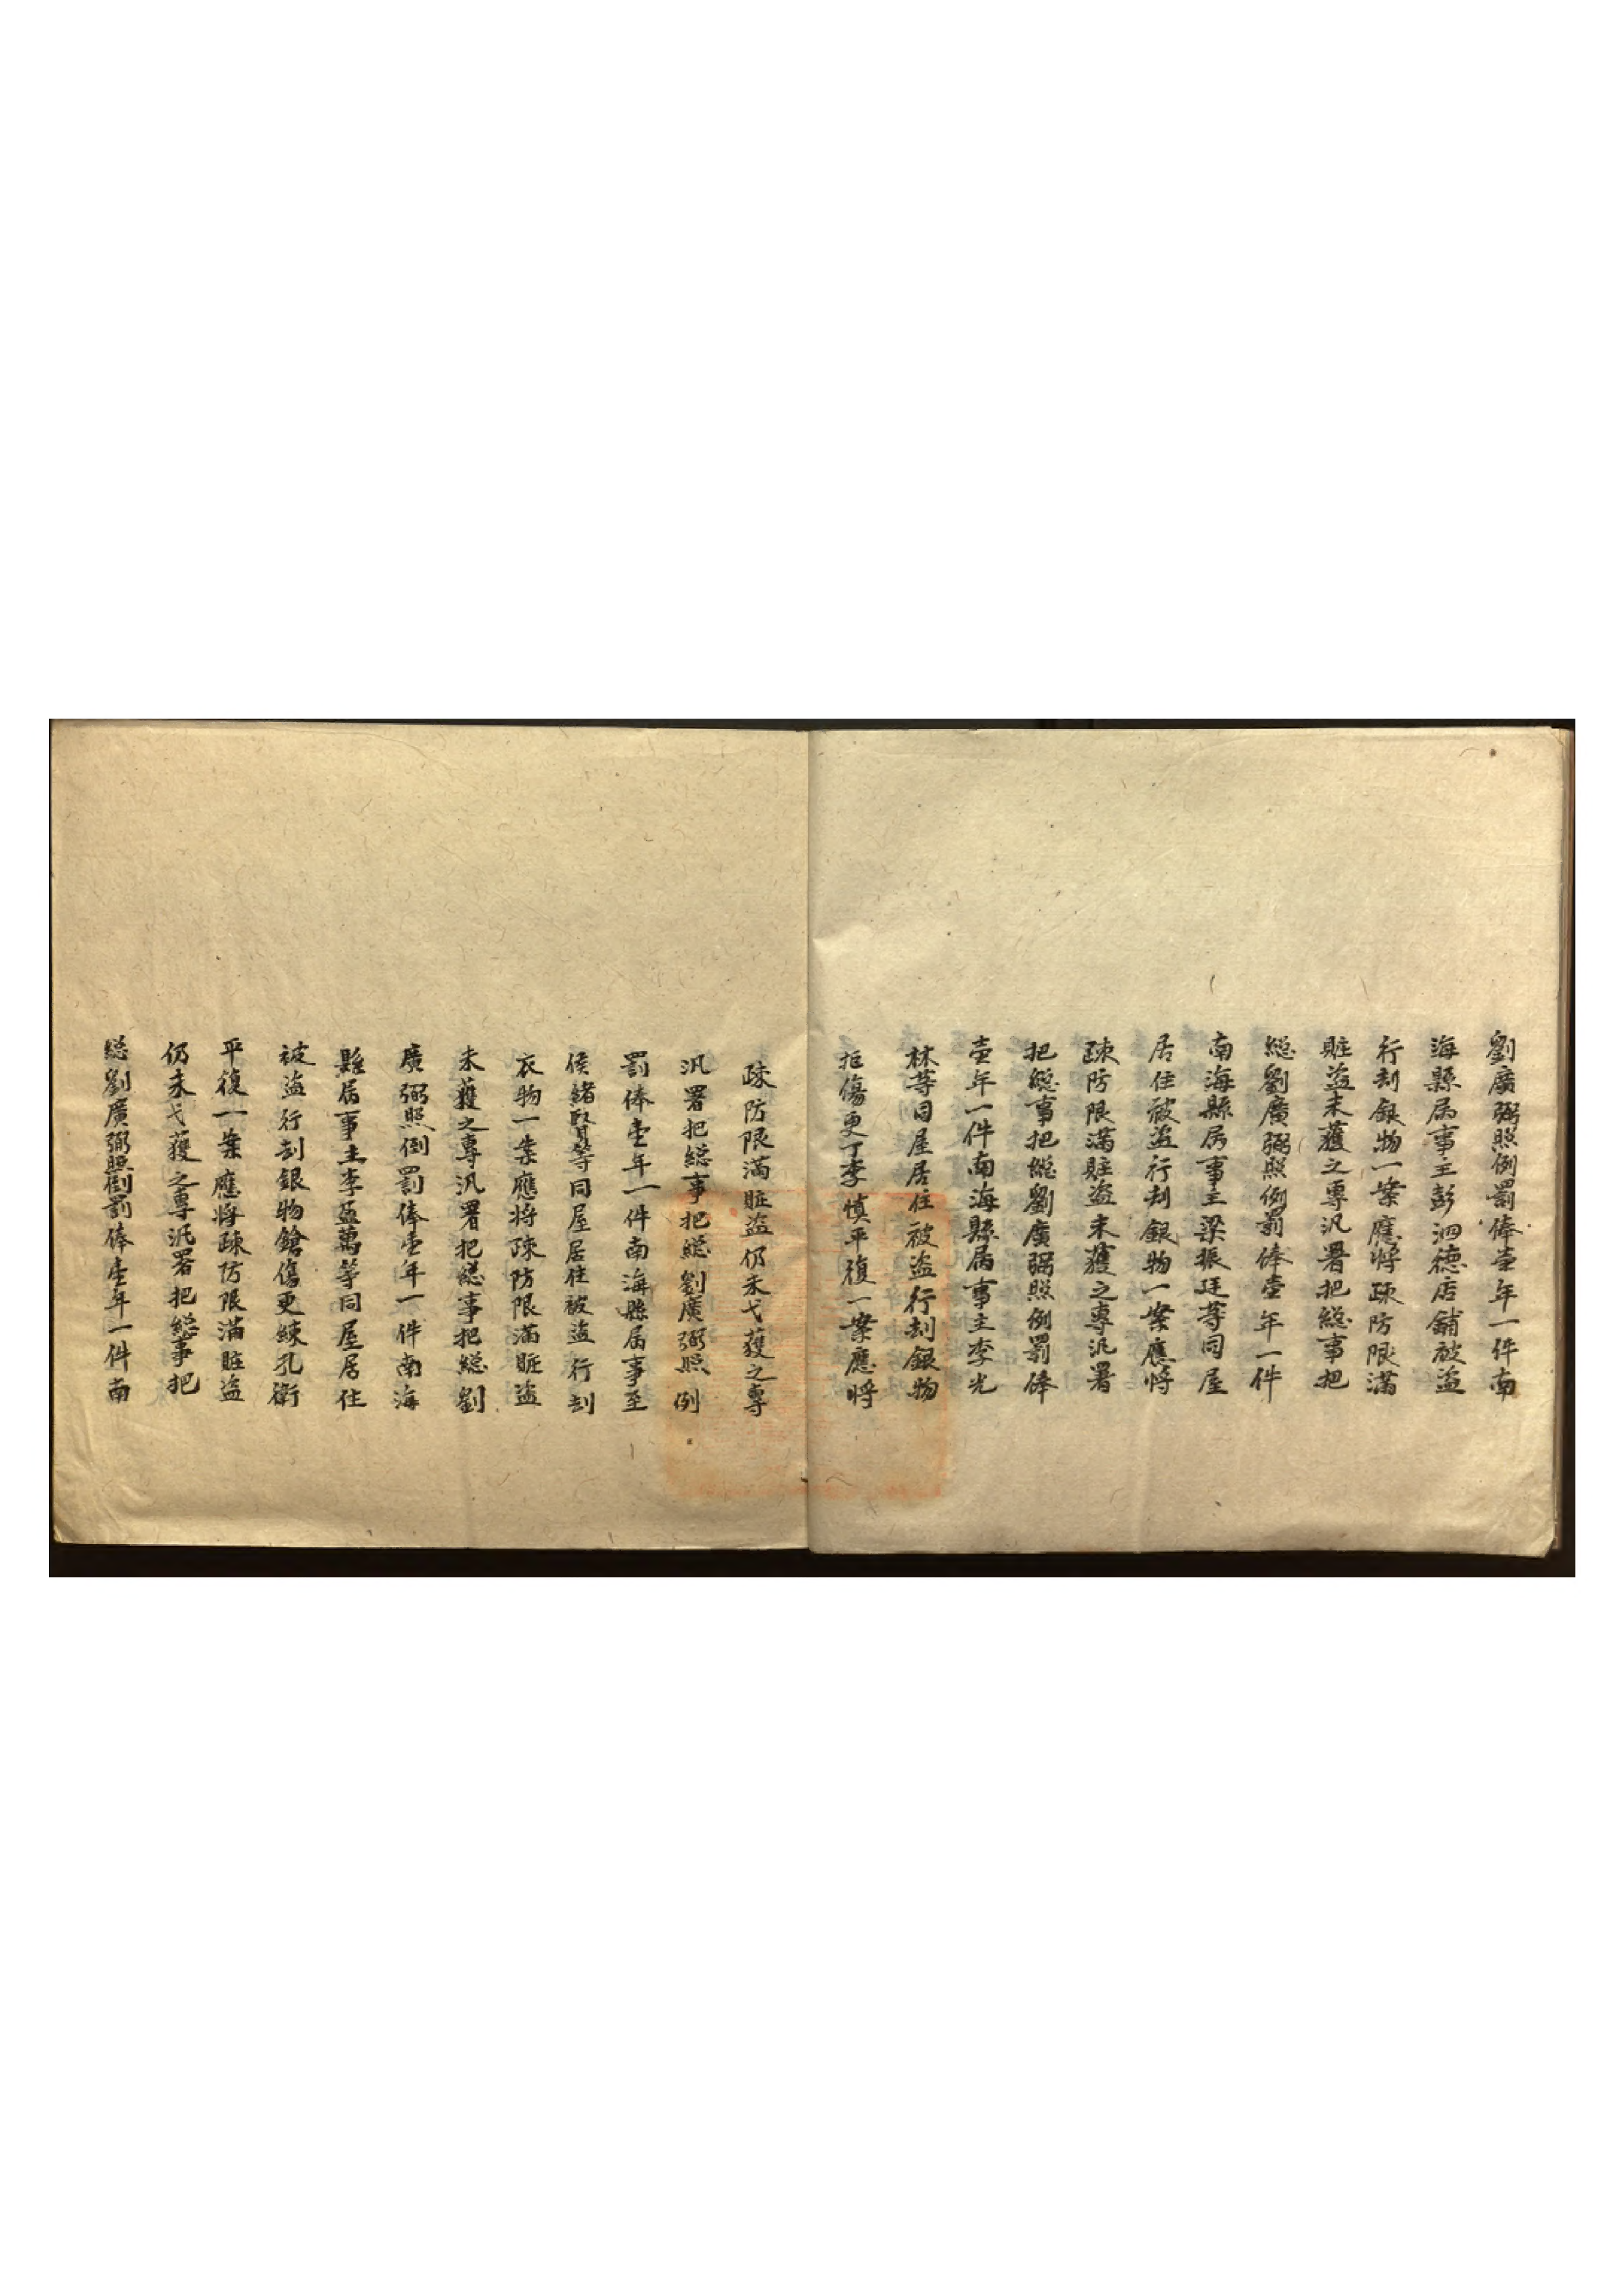 劉廣弼照例罰俸壹年一件南
海縣属事主彭泗德店舖被盗
行刼銀物一案應将疎防限滿
賍盗未獲之專汛署把緫事把
緫劉廣弼照例罰俸壹年一件
南海縣属事主梁振廷等同屋
居住被盗行刼銀物一案應将
疎防限滿賍盗未獲之專汛署
把緫事把緫劉廣弼照例罰俸
壹年一件南海縣属事主李光
林等同屋居住被盗行刼銀物
拒傷更丁李慎平復一案應将
疎防限滿賍盗仍未弋獲之專
汛署把緫事把緫劉廣弼照例
罰俸壹年一件南海縣属事主
侯緒堅等同屋居住被盗行刼
衣物一案應将疎防限滿賍盗
未獲之專汛署把緫事把緫劉
廣弼照例罰俸壹年一件南海
縣属事主李孟萬等同屋居住
被盗行刼銀物鎗傷更練孔衛
平復一案應将疎防限滿賍盗
仍未弋獲之專汛署把緫事把
緫劉廣弼照例罰俸壹年一件南